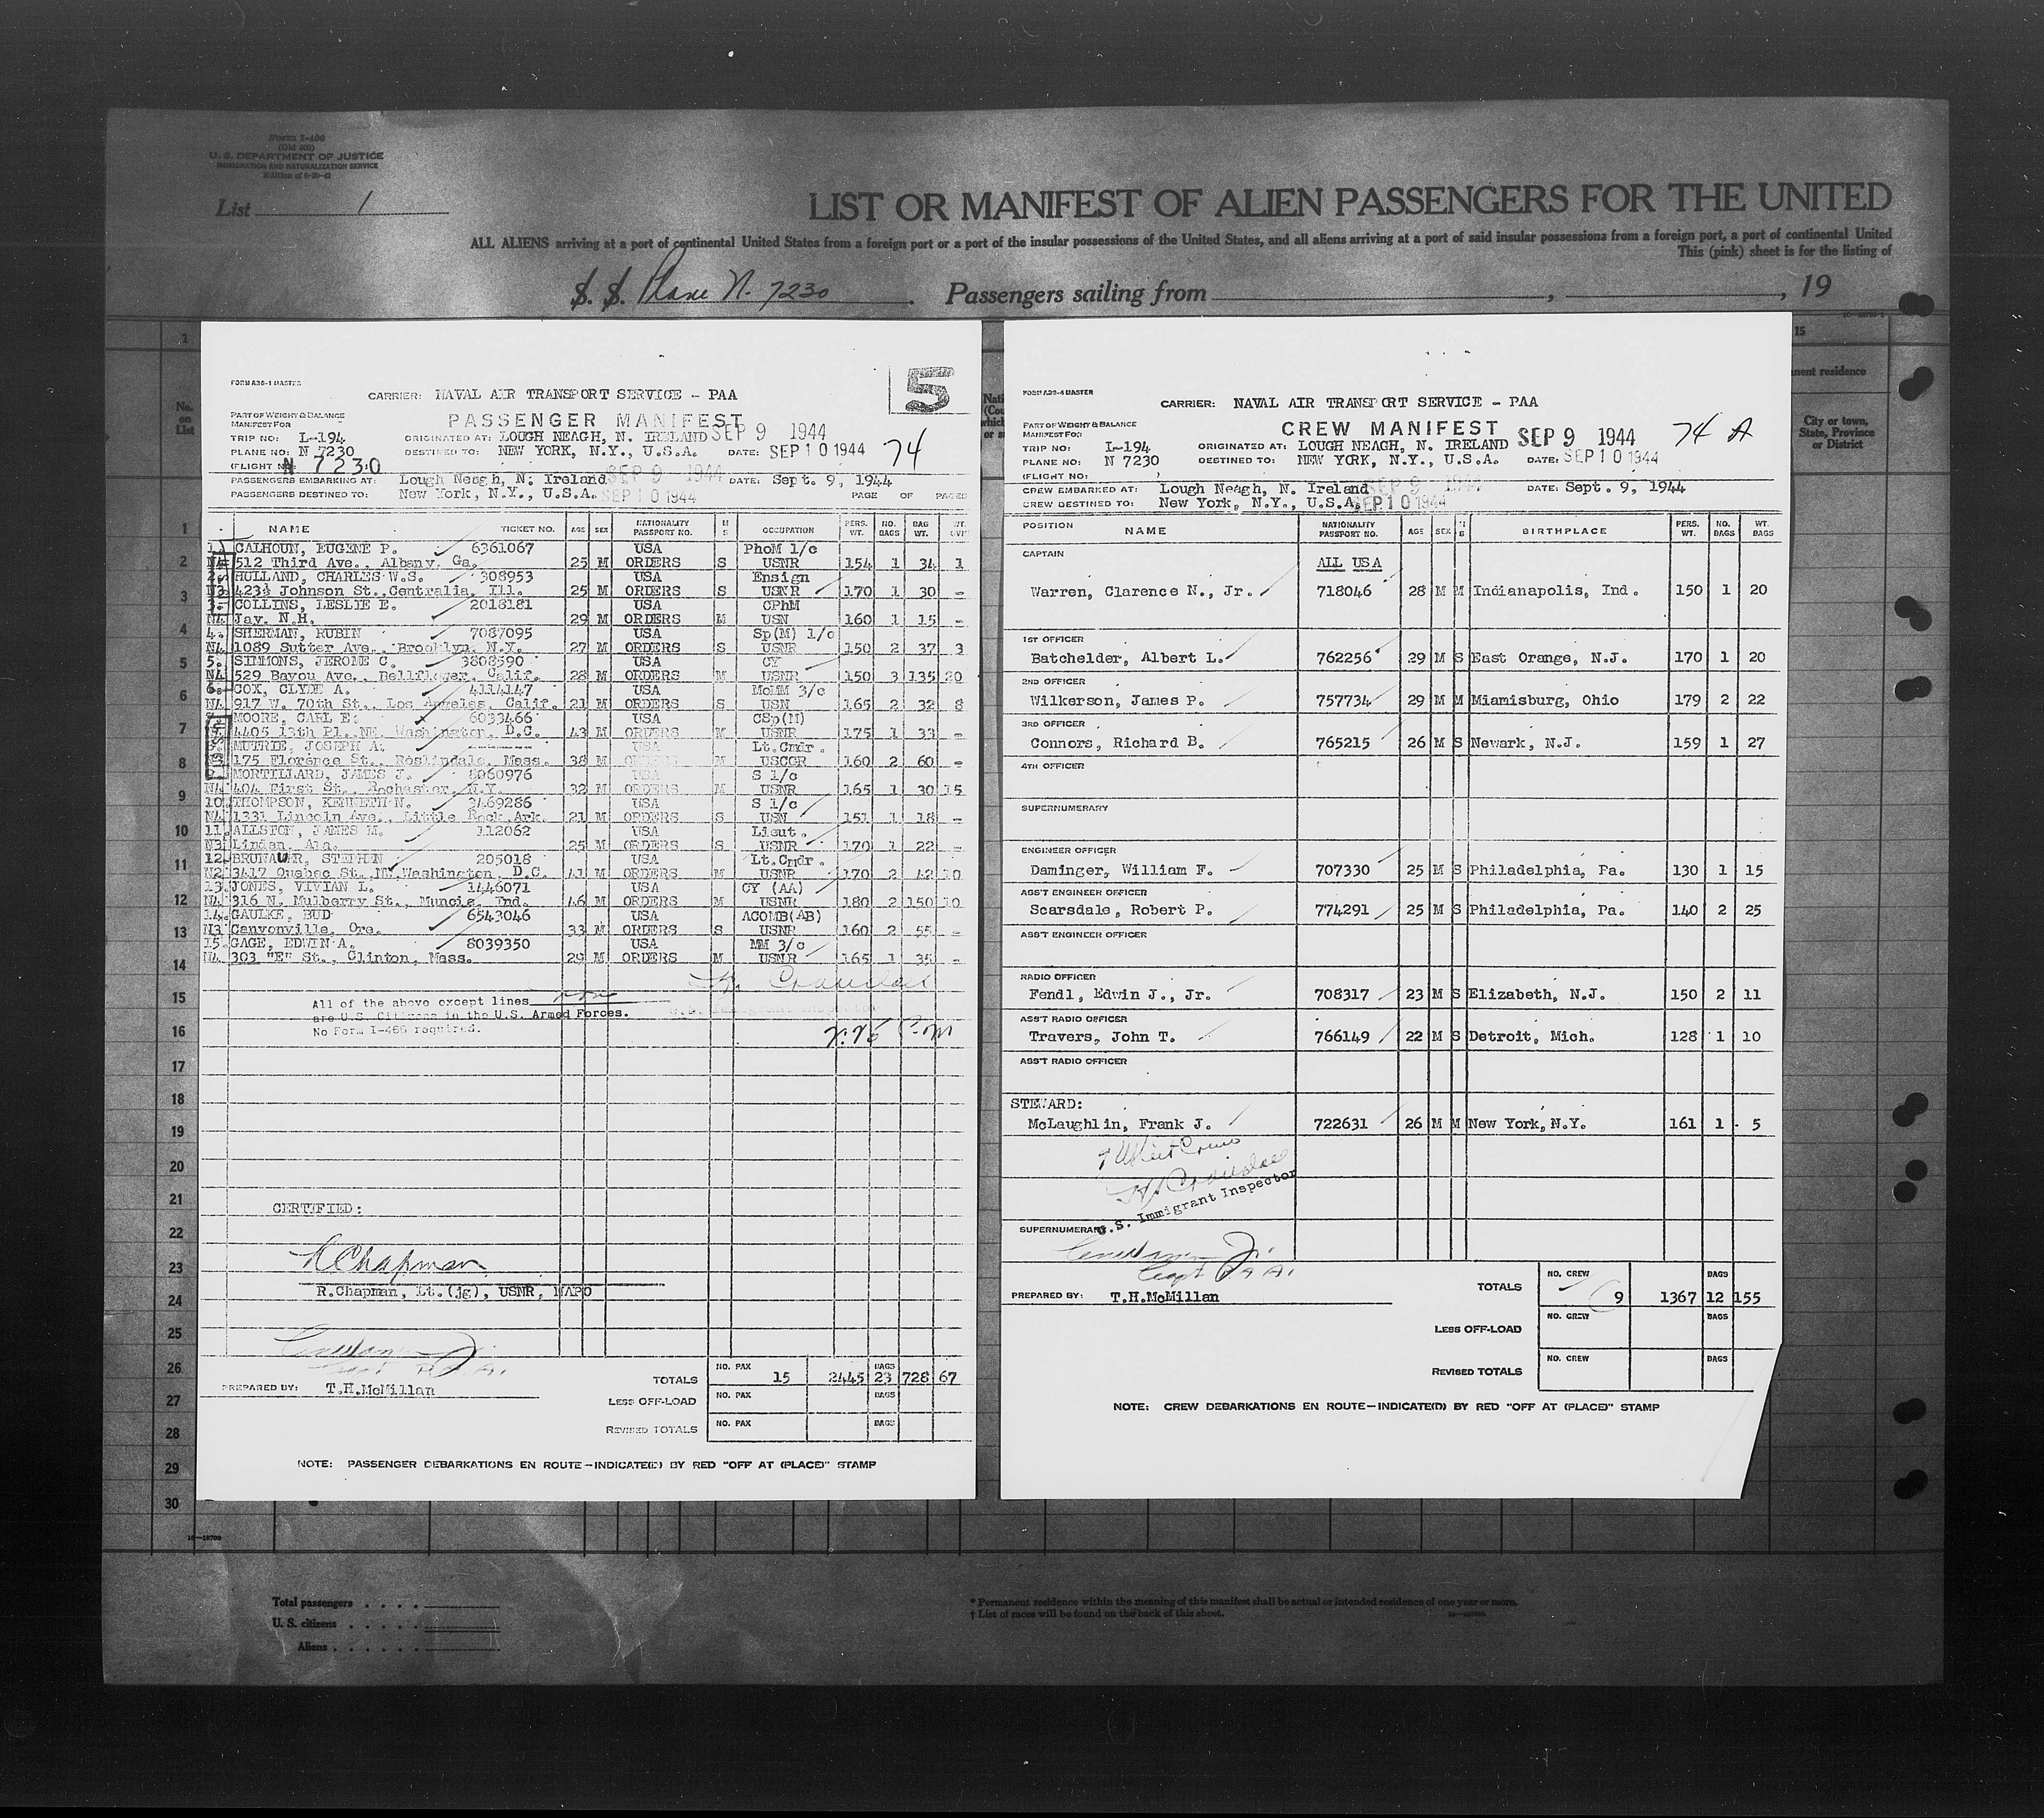 Form I-400
(Old 500)
U. S. DEPARTMENT OF JUSTICE
IMMIGRATION AND NATURALIZATION SERVICE
List 1
LIST OR MANIFEST OF ALIEN PASSENGERS FOR THE UNITED
ALL ALIENS arriving at a port of continental United States from a foreign port or a port of the insular possessions of the United States, and all aliens arriving at a port of said insular possessions from a foreign port, a port of continental United
This (pink) sheet is for the listing of
S. S. Plane N. 7230. Passengers sailing from , , 19
5
CARRIER: NAVAL AIR TRANSPORT SERVICE - PAA
PART OF WEIGHT & BALANCE
MANIFEST FOR
PASSENGER MANIFEST
TRIP NO: L-194 ORIGINATED AT: LOUGH NEAGH, N. IRELAND SEP 9 1944
PLANE NO: N 7230 DESTINED TO: NEW YORK, N.Y., U.S.A. DATE: SEP 10 1944 74
(FLIGHT NO: N 7230
PASSENGERS EMBARKING AT: Lough Neagh, N. Ireland SEP 9 1944 DATE: Sept. 9, 1944
PASSENGERS DESTINED TO: New York, N.Y., U.S.A. SEP 10 1944 PAGE OF PAGES
NAME TICKET NO. AGE SEX NATIONALITY PASSPORT NO. M S OCCUPATION PERS. WT. NO. BAGS BAG WT.
1. CALHOUN, EUGENE P. 6361067 USA PhoM 1/c
N4 512 Third Ave., Albany, Ga. 25 M ORDERS S USNR 154 1 34 1
2. HULLAND, CHARLES W.S. 308953 USA Ensign
N3 423½ Johnson St., Centralia, Ill. 25 M ORDERS S USNR 170 1 30 -
3. COLLINS, LESLIE E. 2018181 USA CPhM
N4 Jay, N.H. 29 M ORDERS M USN 160 1 15 -
4. SHERMAN, RUBIN 7087095 USA Sp(M) 1/c
N4 1089 Sutter Ave., Brooklyn, N.Y. 27 M ORDERS S USNR 150 2 37 3
5. SIMMONS, JEROME C. 3808590 USA CY
N4 529 Bayou Ave., Bellflower, Calif. 28 M ORDERS M USNR 150 3 135 20
6. COX, CLYDE A. 4114147 USA MoMM 3/c
N4 917 W. 70th St., Los Angeles, Calif. 21 M ORDERS S USN 165 2 32 8
7. MOORE, CARL E. 6033466 USA CSp(M)
4405 13th Pl., NE, Washington, D.C. 43 M ORDERS M USNR 175 1 33 -
8. MUTRIE, JOSEPH A. -------- USA Lt.Cmdr.
175 Florence St., Roslindale, Mass. 38 M ORDERS M USCGR 160 2 60 -
9. MORTILLARD, JAMES J. 8060976 USA S 1/c
N4 404 First St., Rochester, N.Y. 32 M ORDERS M USNR 165 1 30 15
10. THOMPSON, KENNETH N. 3469286 USA S 1/c
N4 1331 Lincoln Ave., Little Rock, Ark. 21 M ORDERS S USN 151 1 18 -
11. ALLSTON, JAMES M. 112062 USA Lieut.
N3 Linden, Ala. 25 M ORDERS S USNR 170 1 22 -
12. BRUNAUER, STEPHEN 205018 USA Lt.Cmdr.
N2 3417 Quebec St., NW, Washington, D.C. 41 M ORDERS M USNR 170 2 42 10
13. JONES, VIVIAN L. 1446071 USA CY (AA)
N4 316 N. Mulberry St., Muncie, Ind. 46 M ORDERS M USNR 180 2 150 10
14. GAULKE, BUD 6543046 USA ACOMB(AB)
N3 Canyonville, Ore. 33 M ORDERS S USNR 160 2 55 -
15. GAGE, EDWIN A. 8039350 USA MM 3/c
N4 303 "E" St., Clinton, Mass. 29 M ORDERS M USNR 165 1 35 -
All of the above except lines none
are U.S. Citizens in the U.S. Armed Forces.
No Form I-466 required.
CERTIFIED:
R Chapman
R.Chapman, Lt.(jg), USNR, NAPO
PREPARED BY: T.H.McMillan
TOTALS NO. PAX 15 2445 BAGS 23 728 67
LESS OFF-LOAD NO. PAX BAGS
REVISED TOTALS NO. PAX BAGS
NOTE: PASSENGER DEBARKATIONS EN ROUTE-INDICATE(D) BY RED "OFF AT (PLACE)" STAMP
CARRIER: NAVAL AIR TRANSPORT SERVICE - PAA
PART OF WEIGHT & BALANCE
MANIFEST FOR
CREW MANIFEST SEP 9 1944 74 A
TRIP NO: L-194 ORIGINATED AT: LOUGH NEAGH, N. IRELAND
PLANE NO: N 7230 DESTINED TO: NEW YORK, N.Y., U.S.A. DATE: SEP 10 1944
(FLIGHT NO:
CREW EMBARKED AT: Lough Neagh, N. Ireland SEP 9 1944 DATE: Sept. 9, 1944
CREW DESTINED TO: New York, N.Y., U.S.A. SEP 10 1944
POSITION NAME NATIONALITY PASSPORT NO. AGE SEX M S BIRTHPLACE PERS. WT. NO. BAGS WT. BAGS
CAPTAIN ALL USA
Warren, Clarence N., Jr. 718046 28 M M Indianapolis, Ind. 150 1 20
1ST OFFICER
Batchelder, Albert L. 762256 29 M S East Orange, N.J. 170 1 20
2ND OFFICER
Wilkerson, James P. 757734 29 M M Miamisburg, Ohio 179 2 22
3RD OFFICER
Connors, Richard B. 765215 26 M S Newark, N.J. 159 1 27
4TH OFFICER
SUPERNUMERARY
ENGINEER OFFICER
Daminger, William F. 707330 25 M S Philadelphia, Pa. 130 1 15
ASS'T ENGINEER OFFICER
Scarsdale, Robert P. 774291 25 M S Philadelphia, Pa. 140 2 25
ASS'T ENGINEER OFFICER
RADIO OFFICER
Fendl, Edwin J., Jr. 708317 23 M S Elizabeth, N.J. 150 2 11
ASS'T RADIO OFFICER
Travers, John T. 766149 22 M S Detroit, Mich. 128 1 10
ASS'T RADIO OFFICER
STEWARD:
McLaughlin, Frank J. 722631 26 M M New York, N.Y. 161 1 5
U.S. Immigrant Inspector
SUPERNUMERARY
PREPARED BY: T.H.McMillan
TOTALS NO. CREW 9 1367 BAGS 12 155
LESS OFF-LOAD NO. CREW BAGS
REVISED TOTALS NO. CREW BAGS
NOTE: CREW DEBARKATIONS EN ROUTE-INDICATE(D) BY RED "OFF AT (PLACE)" STAMP
No. on List
1
2
3
4
5
6
7
8
9
10
11
12
13
14
15
16
17
18
19
20
21
22
23
24
25
26
27
28
29
30
15
City or town, State, Province or District
Total passengers
U. S. citizens
Aliens
* Permanent residence within the meaning of this manifest shall be actual or intended residence of one year or more.
† List of races will be found on the back of this sheet.